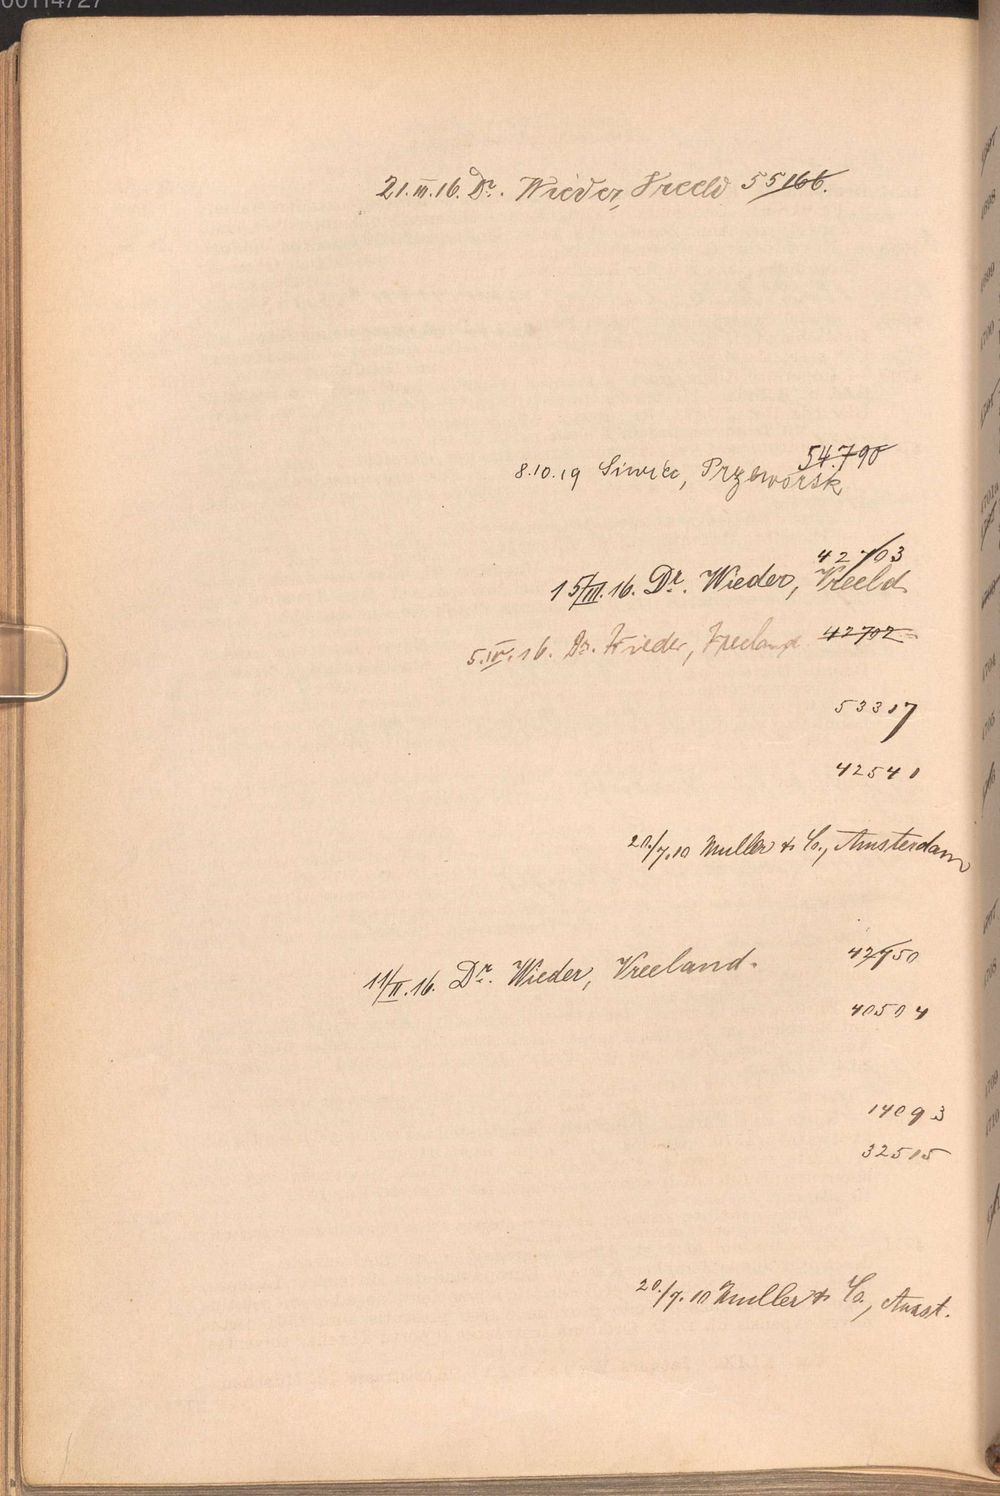 00114727
21.III.16. Dr. Wieder, Vreeld 55166.
54.790
8.10.19 Siwiec, Przeworsk
42703
15/III.16. Dr. Wieder, Vreeld
5.IV.16. Dr. Wieder, Vreeland 42702
53317
42540
20./7.10 Muller & Co., Amsterdam
42750
11/II.16. Dr. Wieder, Vreeland.
40504
14093
32515
20./7.10 Muller & Co., Amst.